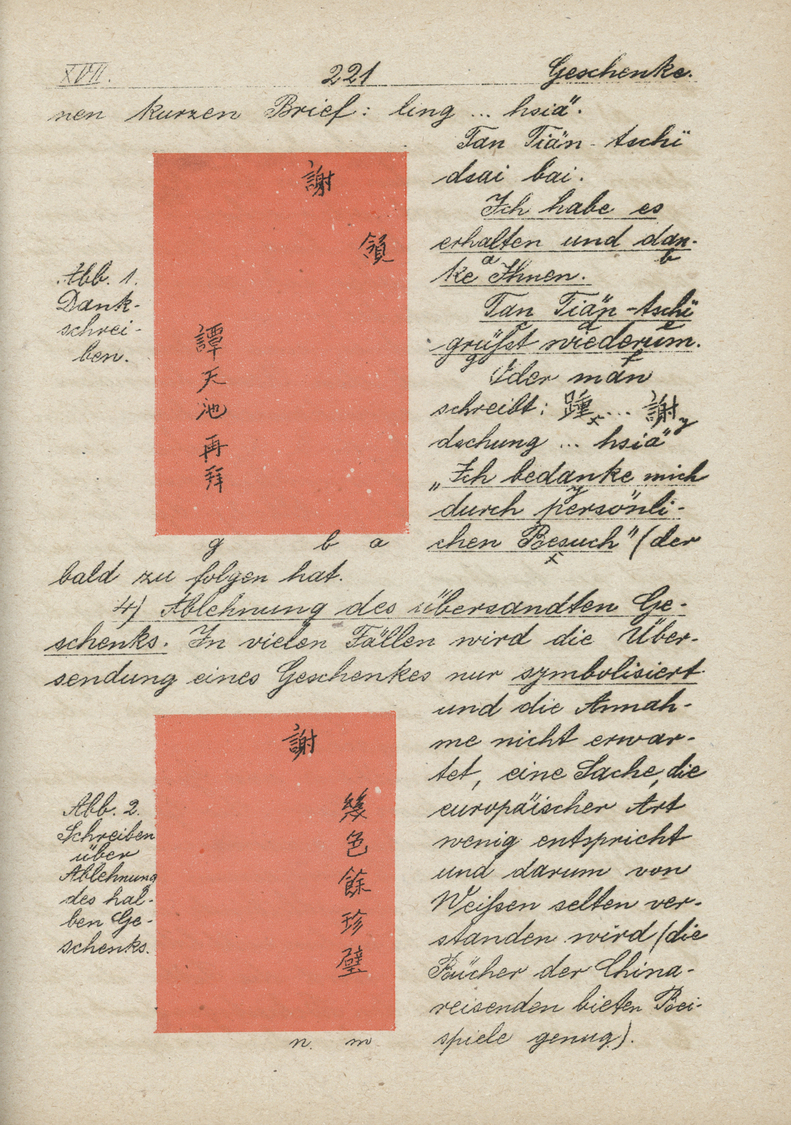 XVII. 221 Geschenke.
nen kurzen Brief: ling ... hsiä".
Tan Tiän-tschï
dsai bai.
Ich habe es
erhalten und dan-
ke Ihnen.
a b
Tan Tiän-tschï
grüßt wiederum.
Oder man
schreibt: 踵 .... 謝
x y
dschung ... hsiä"
„Ich bedanke mich
durch persönli-
y
chen Besuch" (der
x
謝
領
譚天池再拜
Abb. 1.
Dank-
schrei-
ben.
g b a
bald zu folgen hat.
4) Ablehnung des übersandten Ge-
schenks. In vielen Fällen wird die Über-
sendung eines Geschenkes nur symbolisiert
und die Annah-
me nicht erwar-
tet, eine Sache, die
europäischer Art
wenig entspricht
und darum von
Weißen selten ver-
standen wird (die
Bücher der China-
reisenden bieten Bei-
spiele genug).
謝
幾色餘珍璧
Abb. 2.
Schreiben
über
Ablehnung
des hal-
ben Ge-
schenks.
n. m